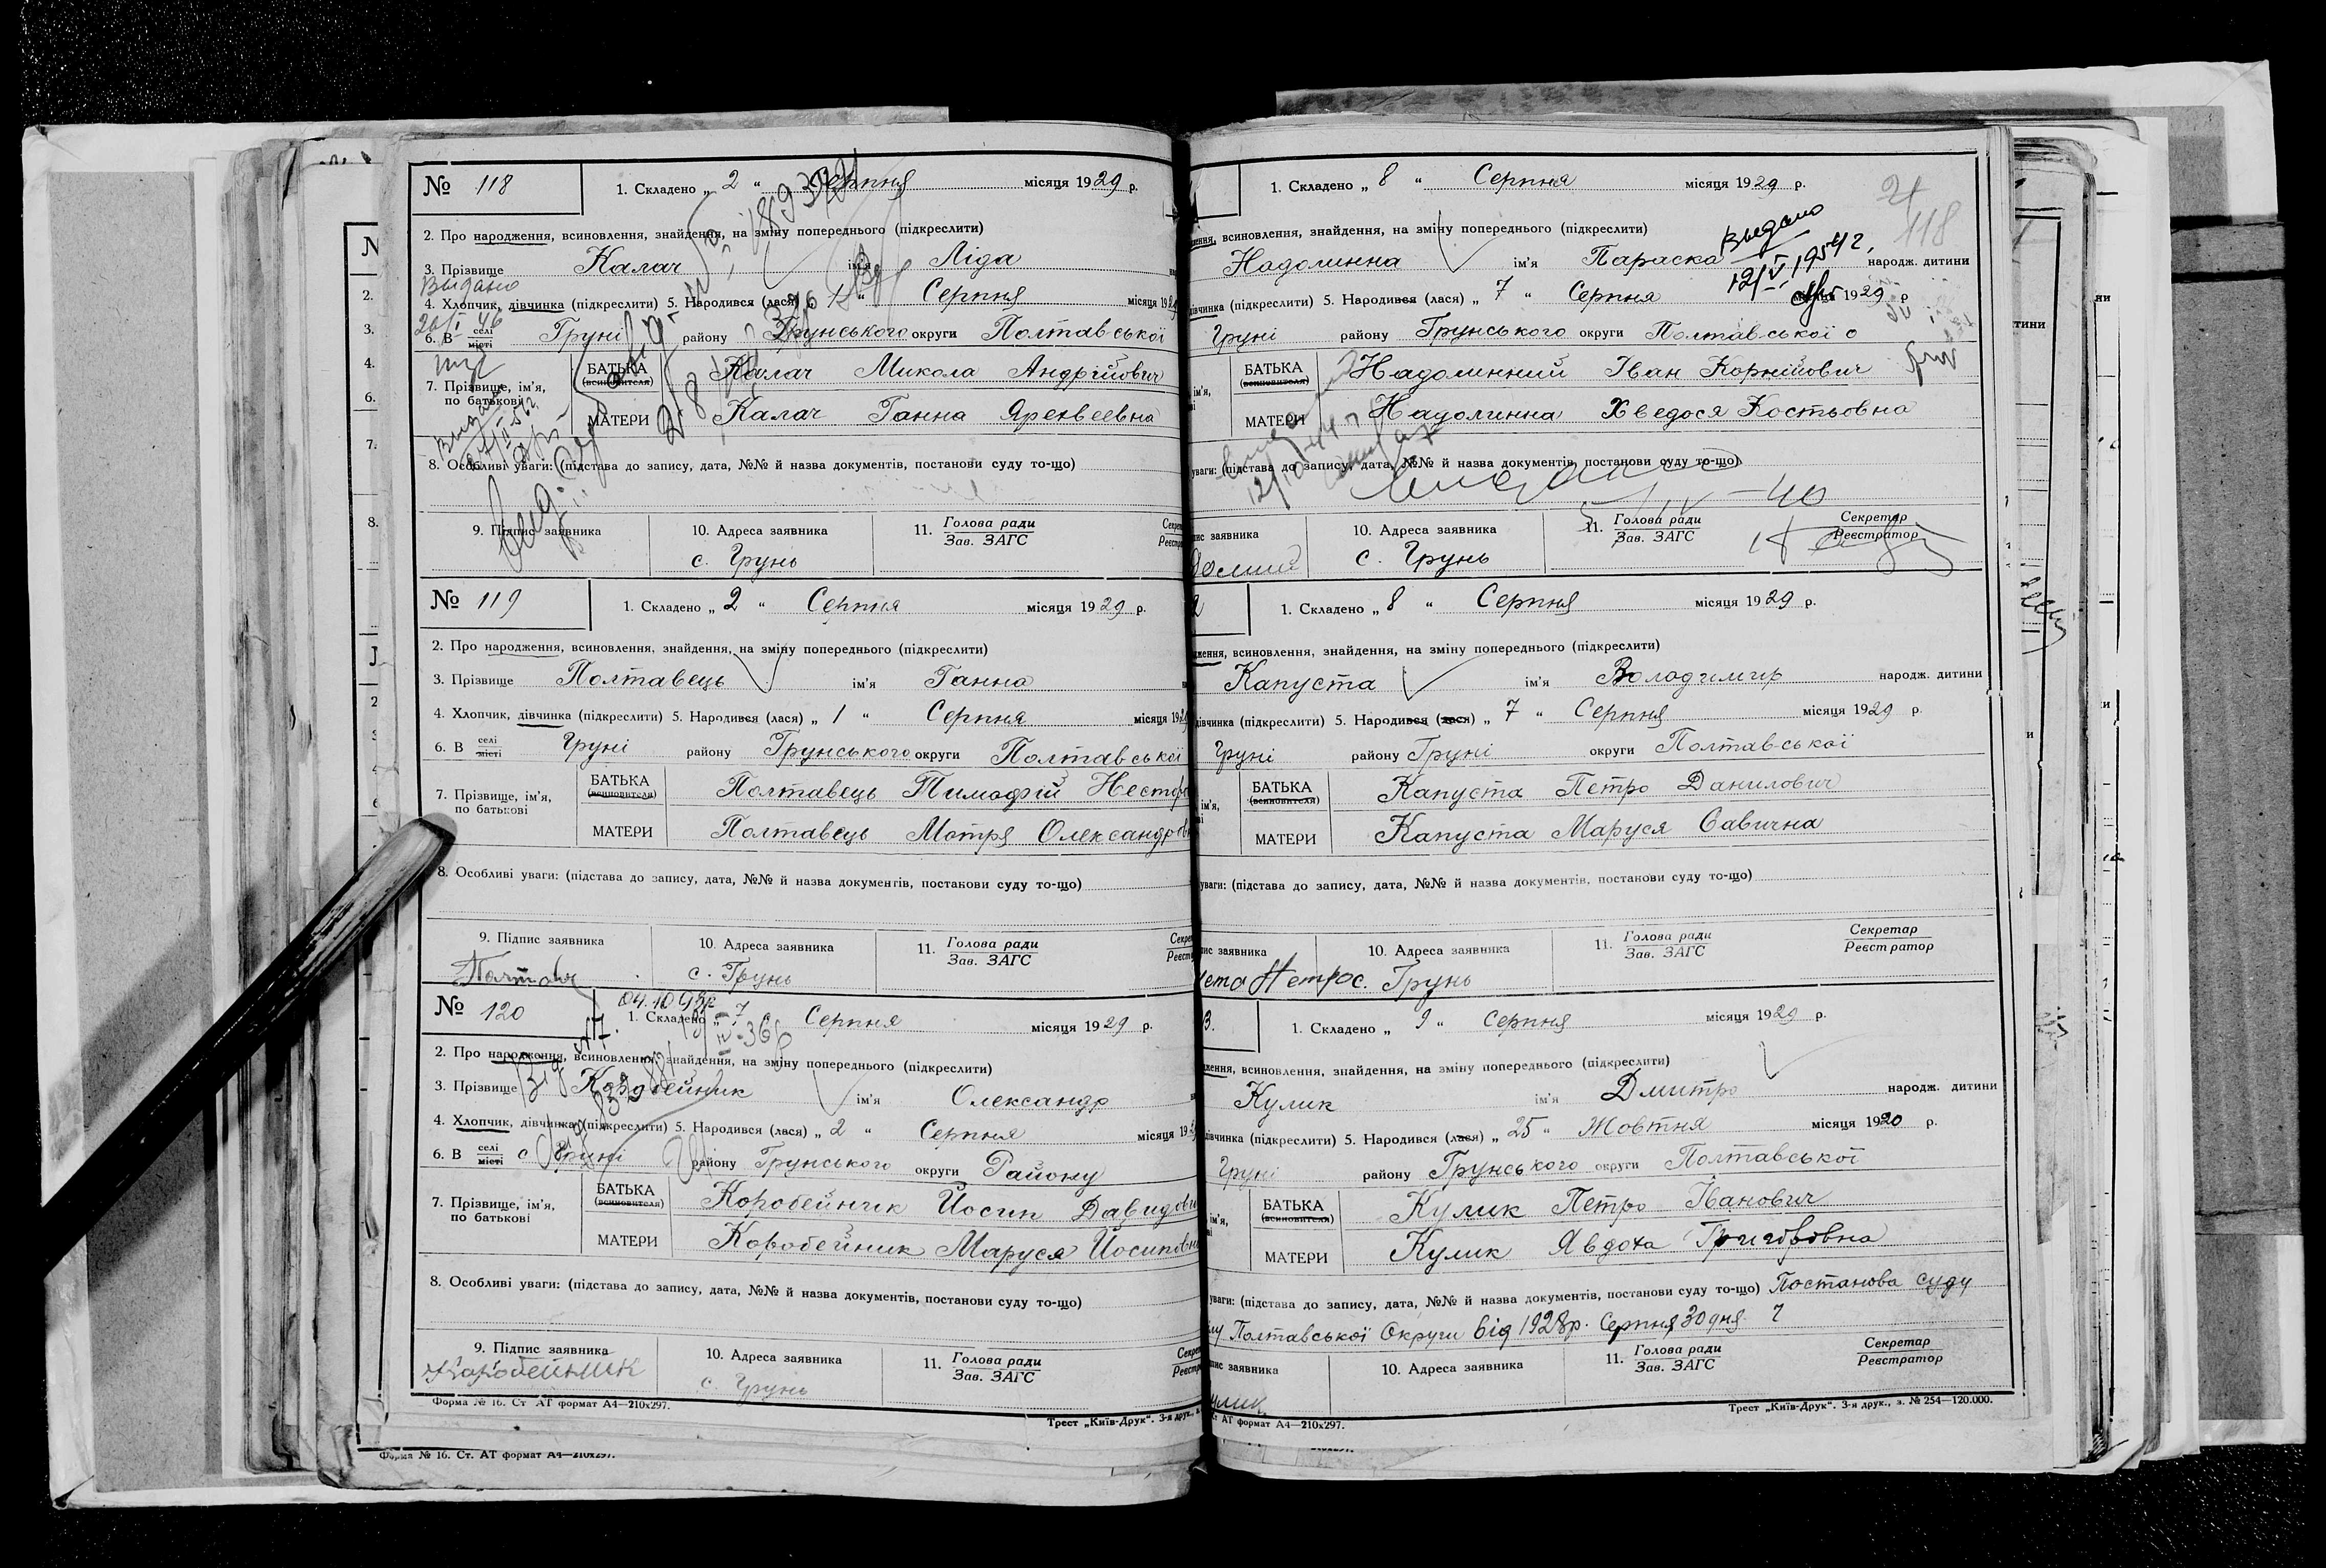 № 118
1. Складено „ 2 “ Серпня місяця 1929 р.
2. Про народження, всиновлення, знайдення, на зміну попереднього (підкреслити)
3. Прізвище Калач ім'я Ліда
Выдано
4. Хлопчик, дівчинка (підкреслити) 5. Народився (лася) „ 1 “ Серпня місяця 19
6. В селі місті Груні району Грунського округи Полтавської
7. Прізвище, ім'я, по батькові
БАТЬКА (всиновителя) Калач Микола Андрійович
МАТЕРИ Калач Ганна
8. Особливі уваги: (підстава до запису, дата, №№ й назва документів, постанови суду то-що)
9. Підпис заявника 10. Адреса заявника 11. Голова ради Зав. ЗАГС
с. Грунь
№ 119
1. Складено „ 2 “ Серпня місяця 1929 р.
2. Про народження, всиновлення, знайдення, на зміну попереднього (підкреслити)
3. Прізвище Полтавець ім'я Ганна
4. Хлопчик, дівчинка (підкреслити) 5. Народився (лася) „ 1 “ Серпня місяця 19
6. В селі місті Груні району Грунського округи Полтавської
7. Прізвище, ім'я, по батькові
БАТЬКА (всиновителя) Полтавець Тимофій Нестор
МАТЕРИ Полтавець Мотря Олександров
8. Особливі уваги: (підстава до запису, дата, №№ й назва документів, постанови суду то-що)
9. Підпис заявника 10. Адреса заявника 11. Голова ради Зав. ЗАГС
с. Грунь
№ 120
1. Складено „ 7 “ Серпня місяця 1929 р.
2. Про народження, всиновлення, знайдення, на зміну попереднього (підкреслити)
3. Прізвище Коробейник ім'я Олександр
4. Хлопчик, дівчинка (підкреслити) 5. Народився (лася) „ 2 “ Серпня місяця 19
6. В селі місті с Груні району Грунського округи Району
7. Прізвище, ім'я, по батькові
БАТЬКА (всиновителя) Коробейник Йосип Давидови
МАТЕРИ Коробейник Маруся Йосиповн
8. Особливі уваги: (підстава до запису, дата, №№ й назва документів, постанови суду то-що)
9. Підпис заявника 10. Адреса заявника 11. Голова ради Зав. ЗАГС
Коробейник с. Грунь
Форма № 16. Ст АТ формат А4—210х297.
Трест „Київ-Друк“. 3-я друк.,
Форма № 16. Ст. АТ формат А4—210х297.
1. Складено „ 8 “ Серпня місяця 1929 р.
118
всиновлення, знайдення, на зміну попереднього (підкреслити)
Выдано
Надолинна ім'я Параска народж. дитини
дівчинка (підкреслити) 5. Народився (лася) „ 7 “ Серпня місяця 1929 р
Груні району Грунського округи Полтавської о
БАТЬКА (всиновителя) Надолинний Іван Корнійович
МАТЕРИ Надолинна Хведося Костьовна
уваги: (підстава до запису, дата, №№ й назва документів, постанови суду то-що)
заявника 10. Адреса заявника 11. Голова ради Зав. ЗАГС Секретар Реєстратор
с. Грунь
1. Складено „ 8 “ Серпня місяця 1929 р.
всиновлення, знайдення, на зміну попереднього (підкреслити)
Капуста ім'я Володимир народж. дитини
дівчинка (підкреслити) 5. Народився (лася) „ 7 “ Серпня місяця 1929 р
Груні району Груні округи Полтавської
БАТЬКА (всиновителя) Капуста Петро Данилович
МАТЕРИ Капуста Маруся Савична
уваги: (підстава до запису, дата, №№ й назва документів, постанови суду то-що)
заявника 10. Адреса заявника 11. Голова ради Зав. ЗАГС Секретар Реєстратор
с. Грунь
3.
1. Складено „ 9 “ Серпня місяця 1929 р.
всиновлення, знайдення, на зміну попереднього (підкреслити)
Кулик ім'я Дмитро народж. дитини
дівчинка (підкреслити) 5. Народився (лася) „ 25 “ Жовтня місяця 1920 р.
Груні району Грунського округи Полтавської
БАТЬКА (всиновителя) Кулик Петро Іванович
МАТЕРИ Кулик Явдоха Григоровна
уваги: (підстава до запису, дата, №№ й назва документів, постанови суду то-що) Постанова суду
Полтавської Округи від 1928р. Серпня 30 дня
заявника 10. Адреса заявника 11. Голова ради Зав. ЗАГС Секретар Реєстратор
АТ формат А4—210х297.
Трест „Київ-Друк“. 3-я друк., з. № 254—120.000.